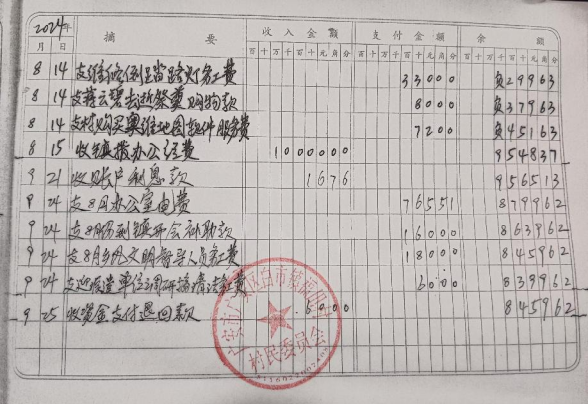 2024年
月 日 摘 要 收入金额 支付金额 余 额
百十万千百十元角分 百十万千百十元角分 百十万千百十元角分
8 14 支维修倒塌路灯务工费 33000 负29963
8 14 支蒋云碧去逝祭奠购物款 8000 负37963
8 14 支村购买奥维地图软件服务费 7200 负45163
8 15 收镇拨办公经费 1000000 954837
9 21 收账户利息款 1676 956513
9 24 支8月办公室电费 76551 879962
9 24 支8月份到镇开会补助款 16000 863962
9 24 支8月乡风文明督导人员务工费 18000 845962
9 24 支迎检查单位调研搞清洁务工费 6000 839962
9 25 收资金支付退回款 6000 845962
区白市镇
村民委员会